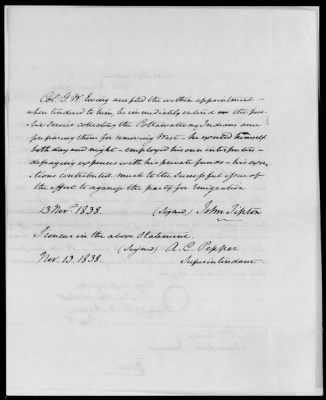 Col. G. W. Ewing accepted the within appointment –
when tendered to him, he immediately entered on the pub-
lic service collecting the Pottawatamy Indians and
preparing them for removing West – he exerted himself
both day and night – employed his own interpreter –
defraying expenses with his private funds – his exer-
tions contributed much to the successful issue of
the effort to organize the party for Emigration
13 Novr. 1838. (Signed) John Tipton
I concur in the above statement.
(Signed) A. C. Pepper
Nov. 13. 1838. Superintendant